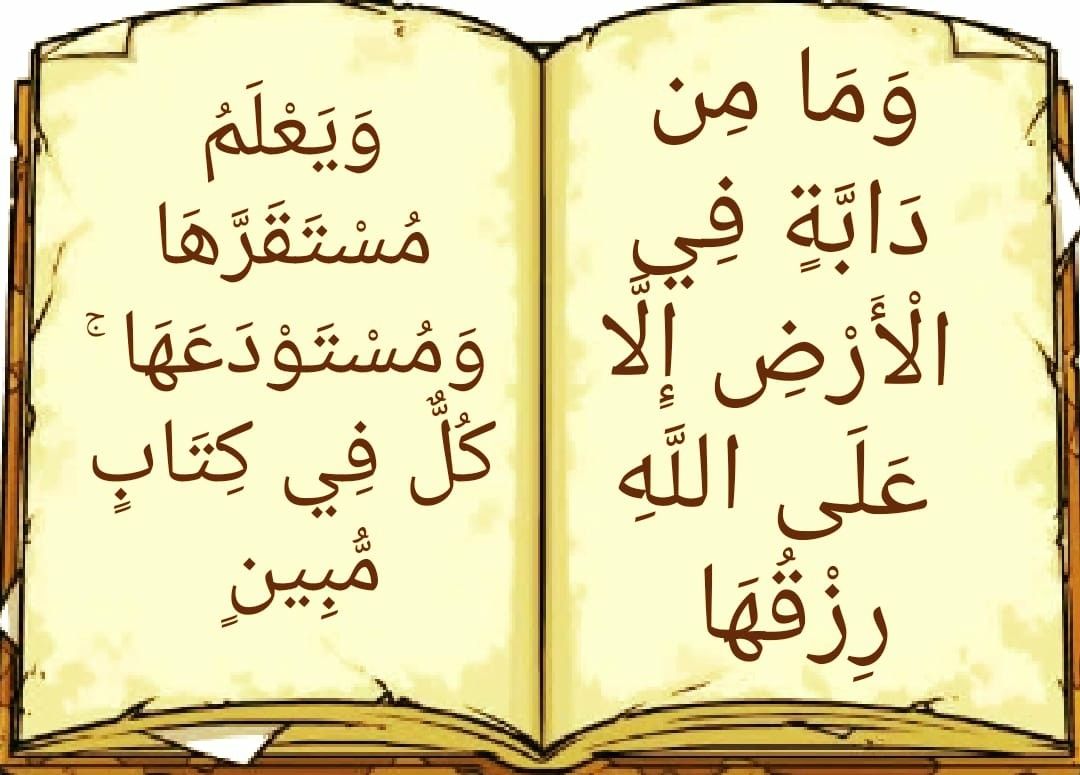 وَمَا مِن
دَابَّةٍ فِي
الْأَرْضِ إِلَّا
عَلَى اللَّهِ
رِزْقُهَا
وَيَعْلَمُ
مُسْتَقَرَّهَا
وَمُسْتَوْدَعَهَا ۚ
كُلٌّ فِي كِتَابٍ
مُّبِينٍ